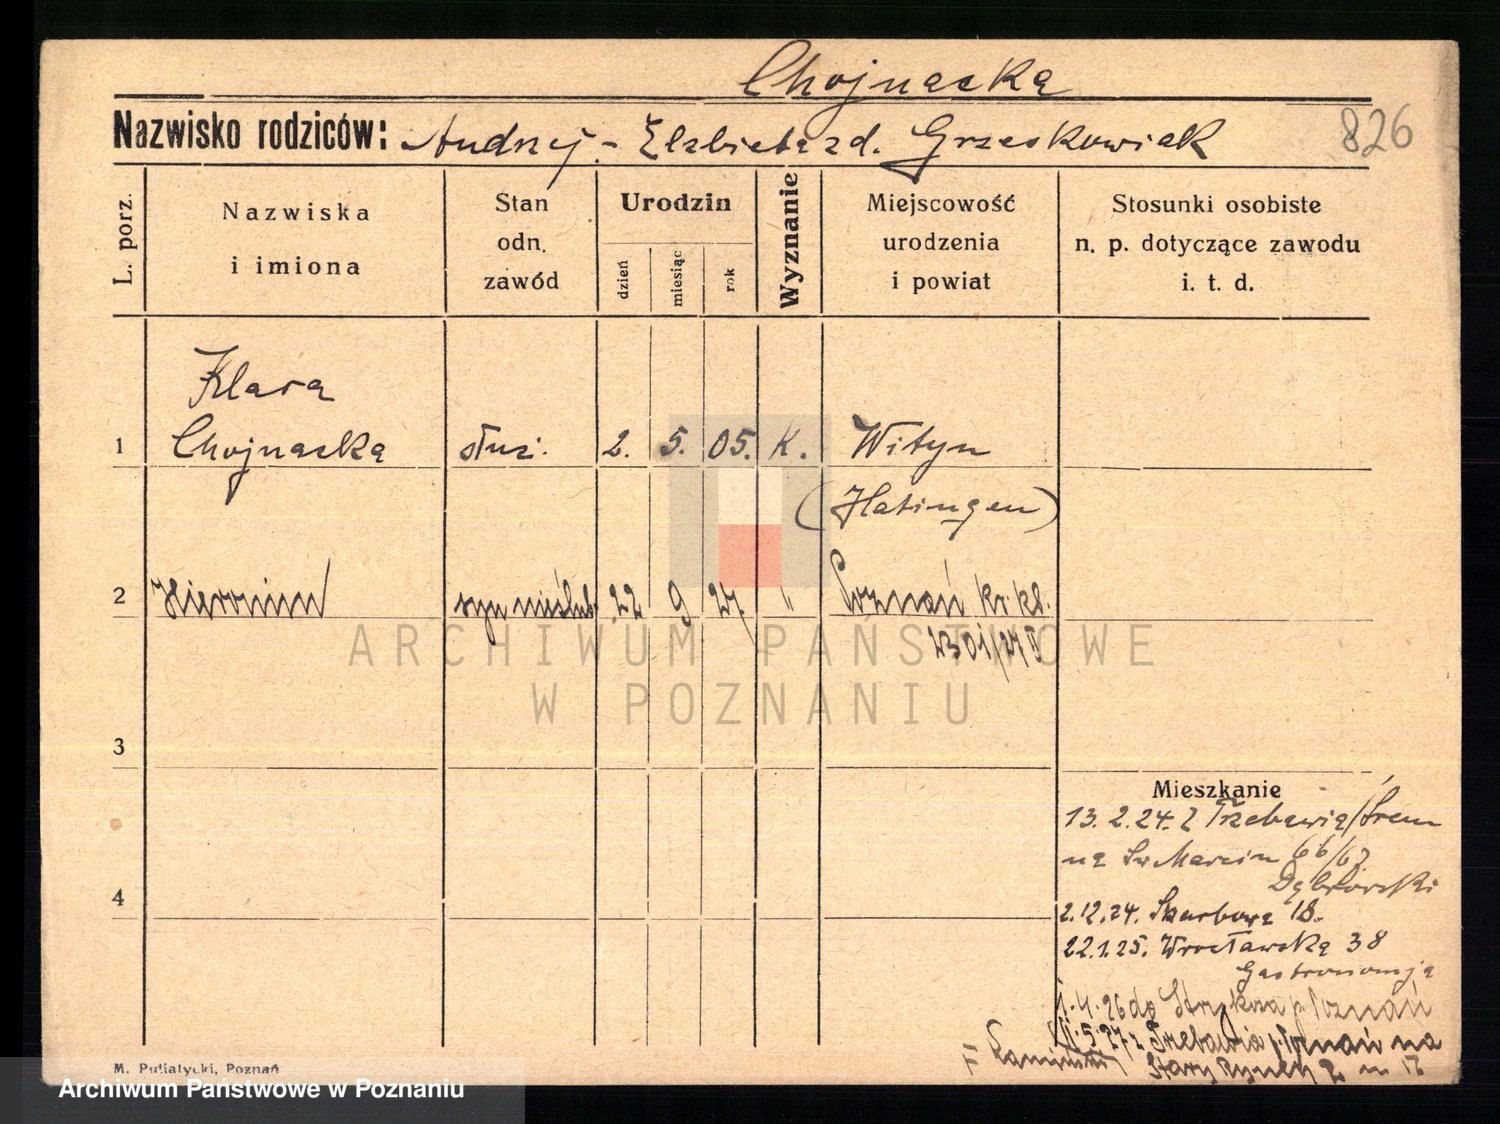 Chojnacka
Nazwisko rodziców: Andrzej - Elzbieta zd. Grzeskowiak
826
L. porz.
Nazwiska
i imiona
Stan
odn.
zawód
Urodzin
dzień
miesiąc
rok
Wyznanie
Miejscowość
urodzenia
i powiat
Stosunki osobiste
n. p. dotyczące zawodu
i. t. d.
Klara
1 Chojnacka służ. 2. 5. 05. K. Wityn
(Hatingen)
2 Hieronim syn nieślub. 22 9 27 " Poznań kr. kl.
2301/27 II
ARCHIWUM PAŃSTWOWE
W POZNANIU
3
4
Mieszkanie
13. 2. 24. z Trzebawia/Śrem
na Sw Marcin 66/67
Dąbrowski
2.12.24. Skarbowa 18.
22.1.25. Wrocławska 38
Gastronomja
1.4.26 do p. Poznań
5.27 z Trzebawia p. Poznań na
Stary Rynek
M. Putiatycki, Poznań
Archiwum Państwowe w Poznaniu